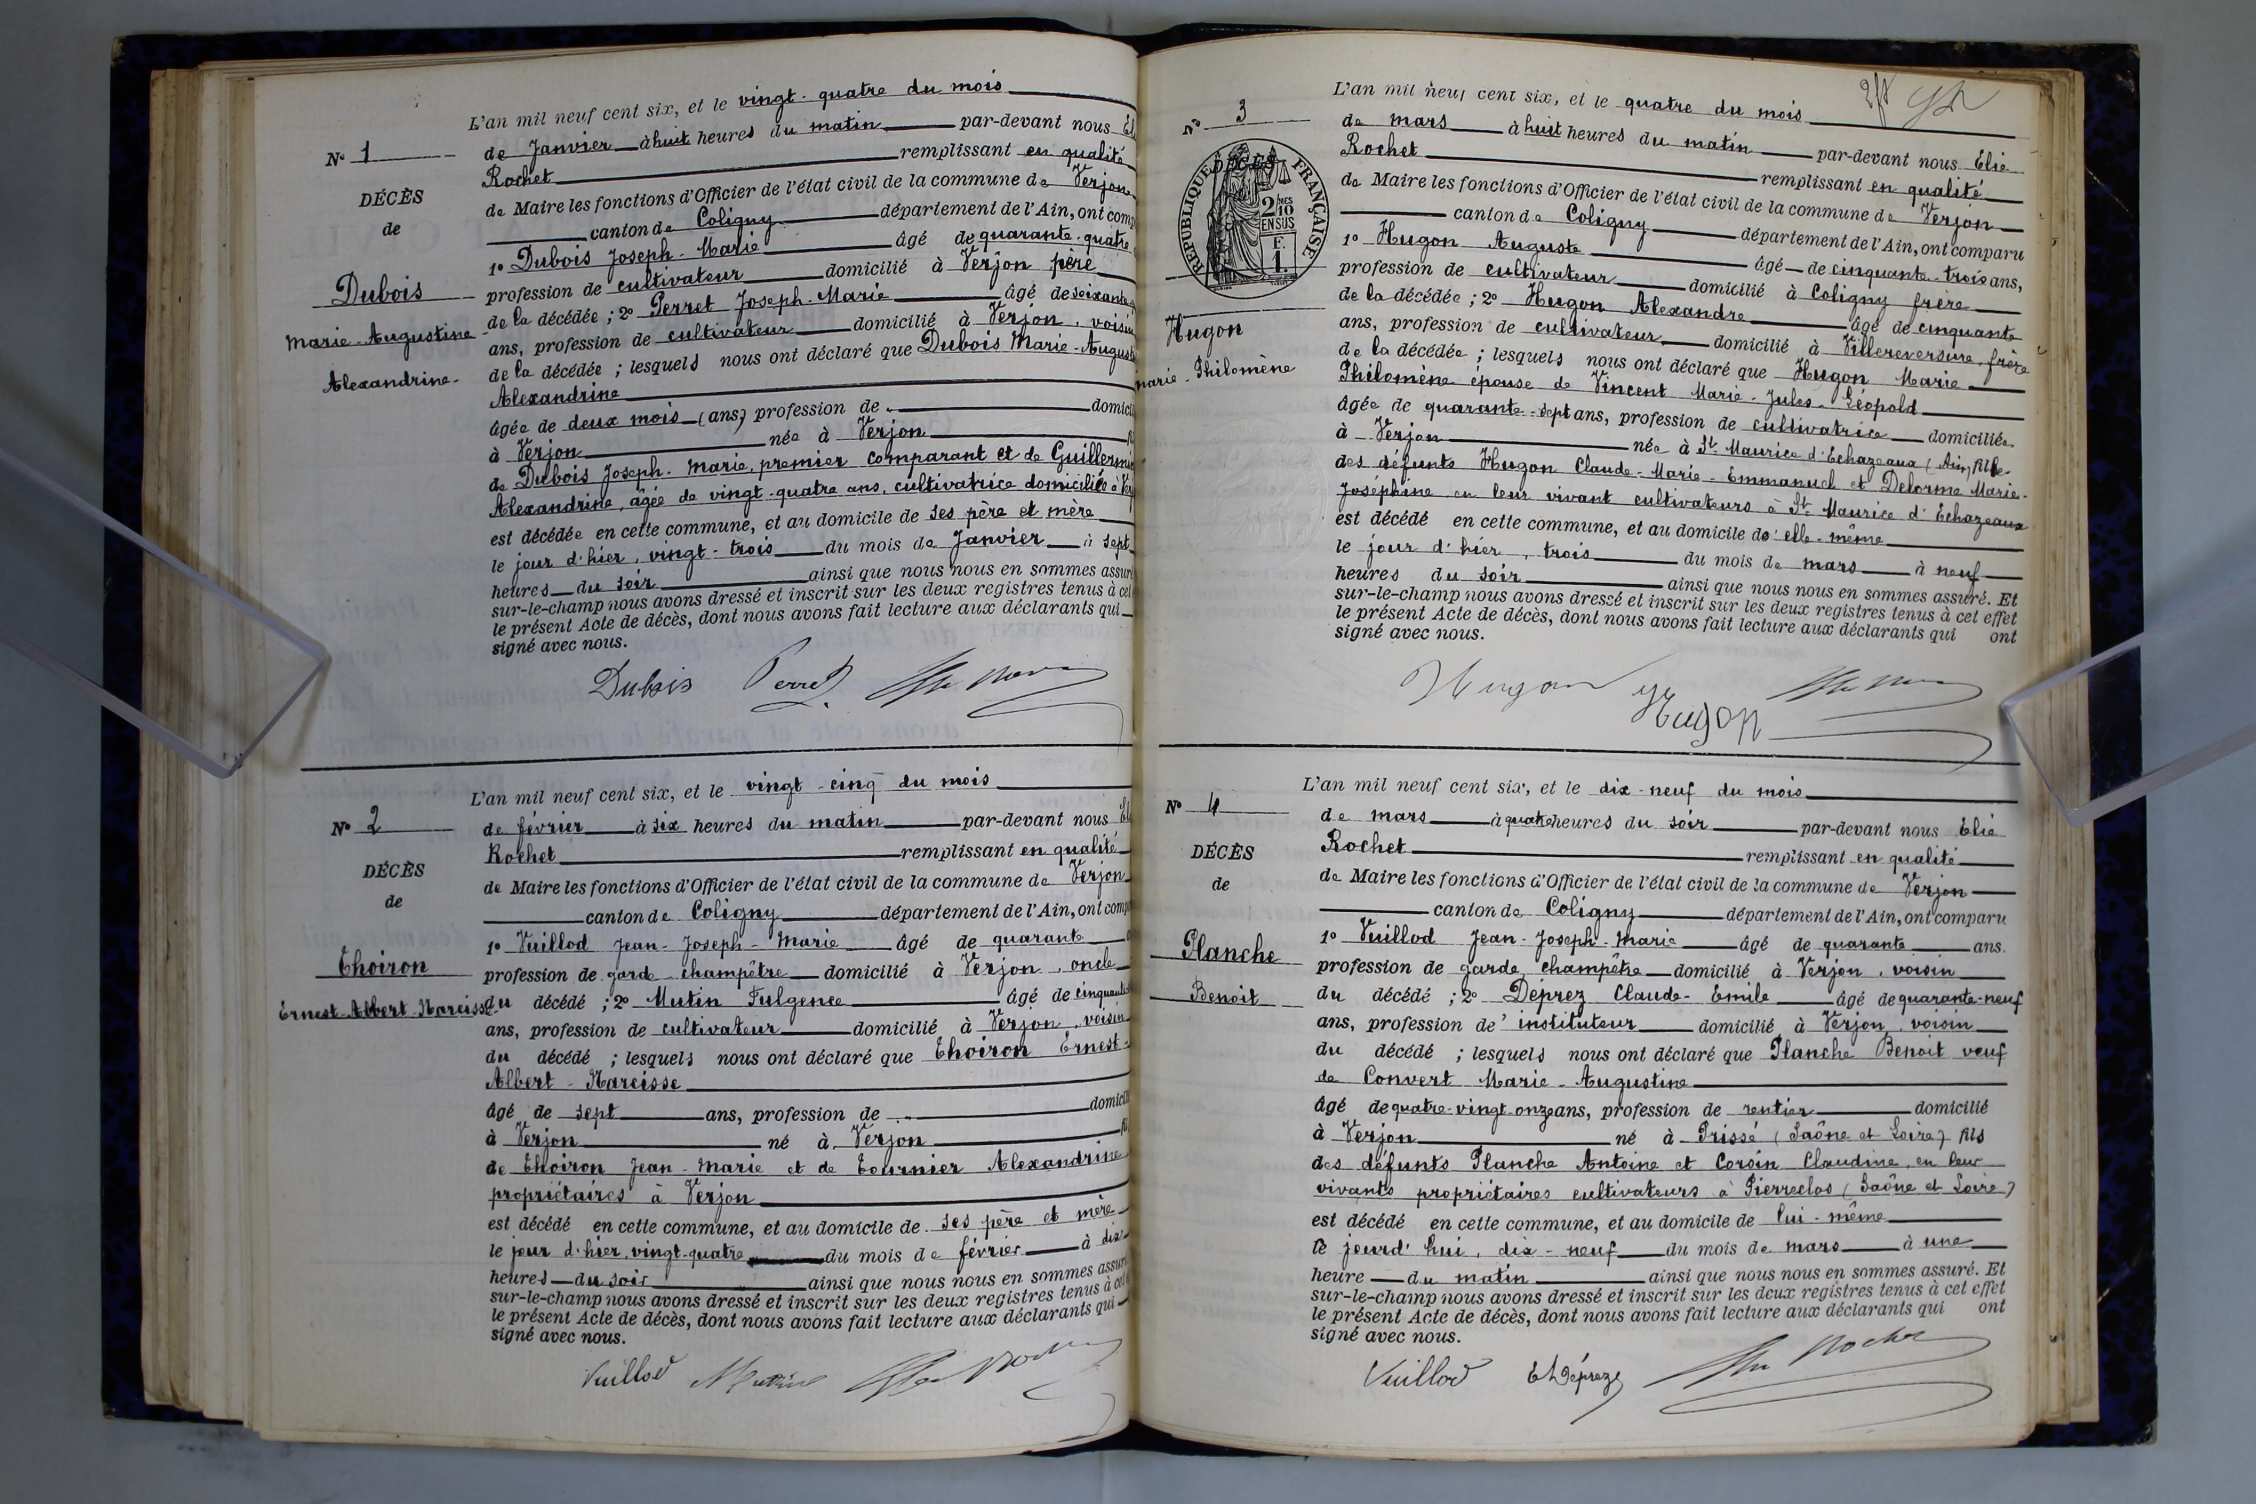 N° 1
DÉCÈS
de
Dubois
Marie-Augustine
Alexandrine.
L'an mil neuf cent six, et le vingt-quatre du mois
de Janvier à huit heures du matin par-devant nous
Rochet remplissant en qualité
de Maire les fonctions d'Officier de l'état civil de la commune de Verjon
canton de Coligny département de l'Ain, ont
1° Dubois Joseph-Marie âgé de quarante-quatre
profession de cultivateur domicilié à Verjon père
de la décédée ; 2° Perret Joseph-Marie âgé de soixante
ans, profession de cultivateur domicilié à Verjon, voisin
de la décédée ; lesquels nous ont déclaré que Dubois Marie-
Alexandrine
âgée de deux mois (ans) profession de
à Verjon née à Verjon
de Dubois Joseph-Marie, premier comparant et de
Alexandrine, âgée de vingt-quatre ans, cultivatrice domiciliée à
est décédée en cette commune, et au domicile de ses père et mère
le jour d'hier, vingt-trois du mois de Janvier à sept
heures du soir ainsi que nous nous en sommes
sur-le-champ nous avons dressé et inscrit sur les deux registres tenus à
le présent Acte de décès, dont nous avons fait lecture aux déclarants qui
signé avec nous.
Dubois Perret
N° 2
DÉCÈS
de
Thoiron
Ernest-Albert-Narcisse
L'an mil neuf cent six, et le vingt-cinq du mois
de février à six heures du matin par-devant nous
Rochet remplissant en qualité
de Maire les fonctions d'Officier de l'état civil de la commune de Verjon
canton de Coligny département de l'Ain, ont
1° Vuillod Jean-Joseph-Marie âgé de quarante
profession de garde champêtre domicilié à Verjon, oncle
du décédé ; 2° Mutin Fulgence âgé de
ans, profession de cultivateur domicilié à Verjon, voisin
du décédé ; lesquels nous ont déclaré que Thoiron Ernest-
Albert-Narcisse
âgé de sept ans, profession de
à Verjon né à Verjon
de Thoiron Jean-Marie et de Tournier Alexandrine
propriétaires à Verjon
est décédé en cette commune, et au domicile de ses père et mère
le jour d'hier, vingt-quatre du mois de février à
heures du soir ainsi que nous nous en sommes
sur-le-champ nous avons dressé et inscrit sur les deux registres tenus à
le présent Acte de décès, dont nous avons fait lecture aux déclarants qui
signé avec nous.
Vuillod Mutin
N° 3
DÉCÈS
RÉPUBLIQUE FRANÇAISE
2 MES
10
EN SUS
F.
1.
Hugon
Marie-Philomène
L'an mil neuf cent six, et le quatre du mois
de mars à huit heures du matin par-devant nous Elie
Rochet remplissant en qualité
de Maire les fonctions d'Officier de l'état civil de la commune de Verjon
canton de Coligny département de l'Ain, ont comparu
1° Hugon Auguste âgé de cinquante-trois ans,
profession de cultivateur domicilié à Coligny frère
de la décédée ; 2° Hugon Alexandre âgé de cinquante
ans, profession de cultivateur domicilié à Villereversure, frère
de la décédée ; lesquels nous ont déclaré que Hugon Marie
Philomène épouse de Vincent Marie-Jules-Léopold
âgée de quarante-sept ans, profession de cultivatrice domiciliée
à Verjon née à St Maurice d'Echazeaux (Ain) fille
des défunts Hugon Claude-Marie-Emmanuel et Delorme Marie-
Joséphine en leur vivant cultivateurs à St Maurice d'Echazeaux
est décédé en cette commune, et au domicile d'elle-même
le jour d'hier, trois du mois de mars à neuf
heures du soir ainsi que nous nous en sommes assuré. Et
sur-le-champ nous avons dressé et inscrit sur les deux registres tenus à cet effet
le présent Acte de décès, dont nous avons fait lecture aux déclarants qui ont
signé avec nous.
Hugon
Hugon
N° 4
DÉCÈS
de
Planche
Benoit
L'an mil neuf cent six, et le dix-neuf du mois
de mars à quatre heures du soir par-devant nous Elie
Rochet remplissant en qualité
de Maire les fonctions d'Officier de l'état civil de la commune de Verjon
canton de Coligny département de l'Ain, ont comparu
1° Vuillod Jean-Joseph-Marie âgé de quarante ans.
profession de garde champêtre domicilié à Verjon, voisin
du décédé ; 2° Déprez Claude-Emile âgé de quarante-neuf
ans, profession de instituteur domicilié à Verjon, voisin
du décédé ; lesquels nous ont déclaré que Planche Benoit veuf
de Convert Marie-Augustine
âgé de quatre-vingt-onze ans, profession de rentier domicilié
à Verjon né à Prissé (Saône et Loire) fils
des défunts Planche Antoine et Corsin Claudine, en leur
vivants propriétaires cultivateurs à Pierreclos (Saône et Loire)
est décédé en cette commune, et au domicile de lui-même
le jourd'hui, dix-neuf du mois de mars à une
heure du matin ainsi que nous nous en sommes assuré. Et
sur-le-champ nous avons dressé et inscrit sur les deux registres tenus à cet effet
le présent Acte de décès, dont nous avons fait lecture aux déclarants qui ont
signé avec nous.
Vuillod Déprez Elie Rochet